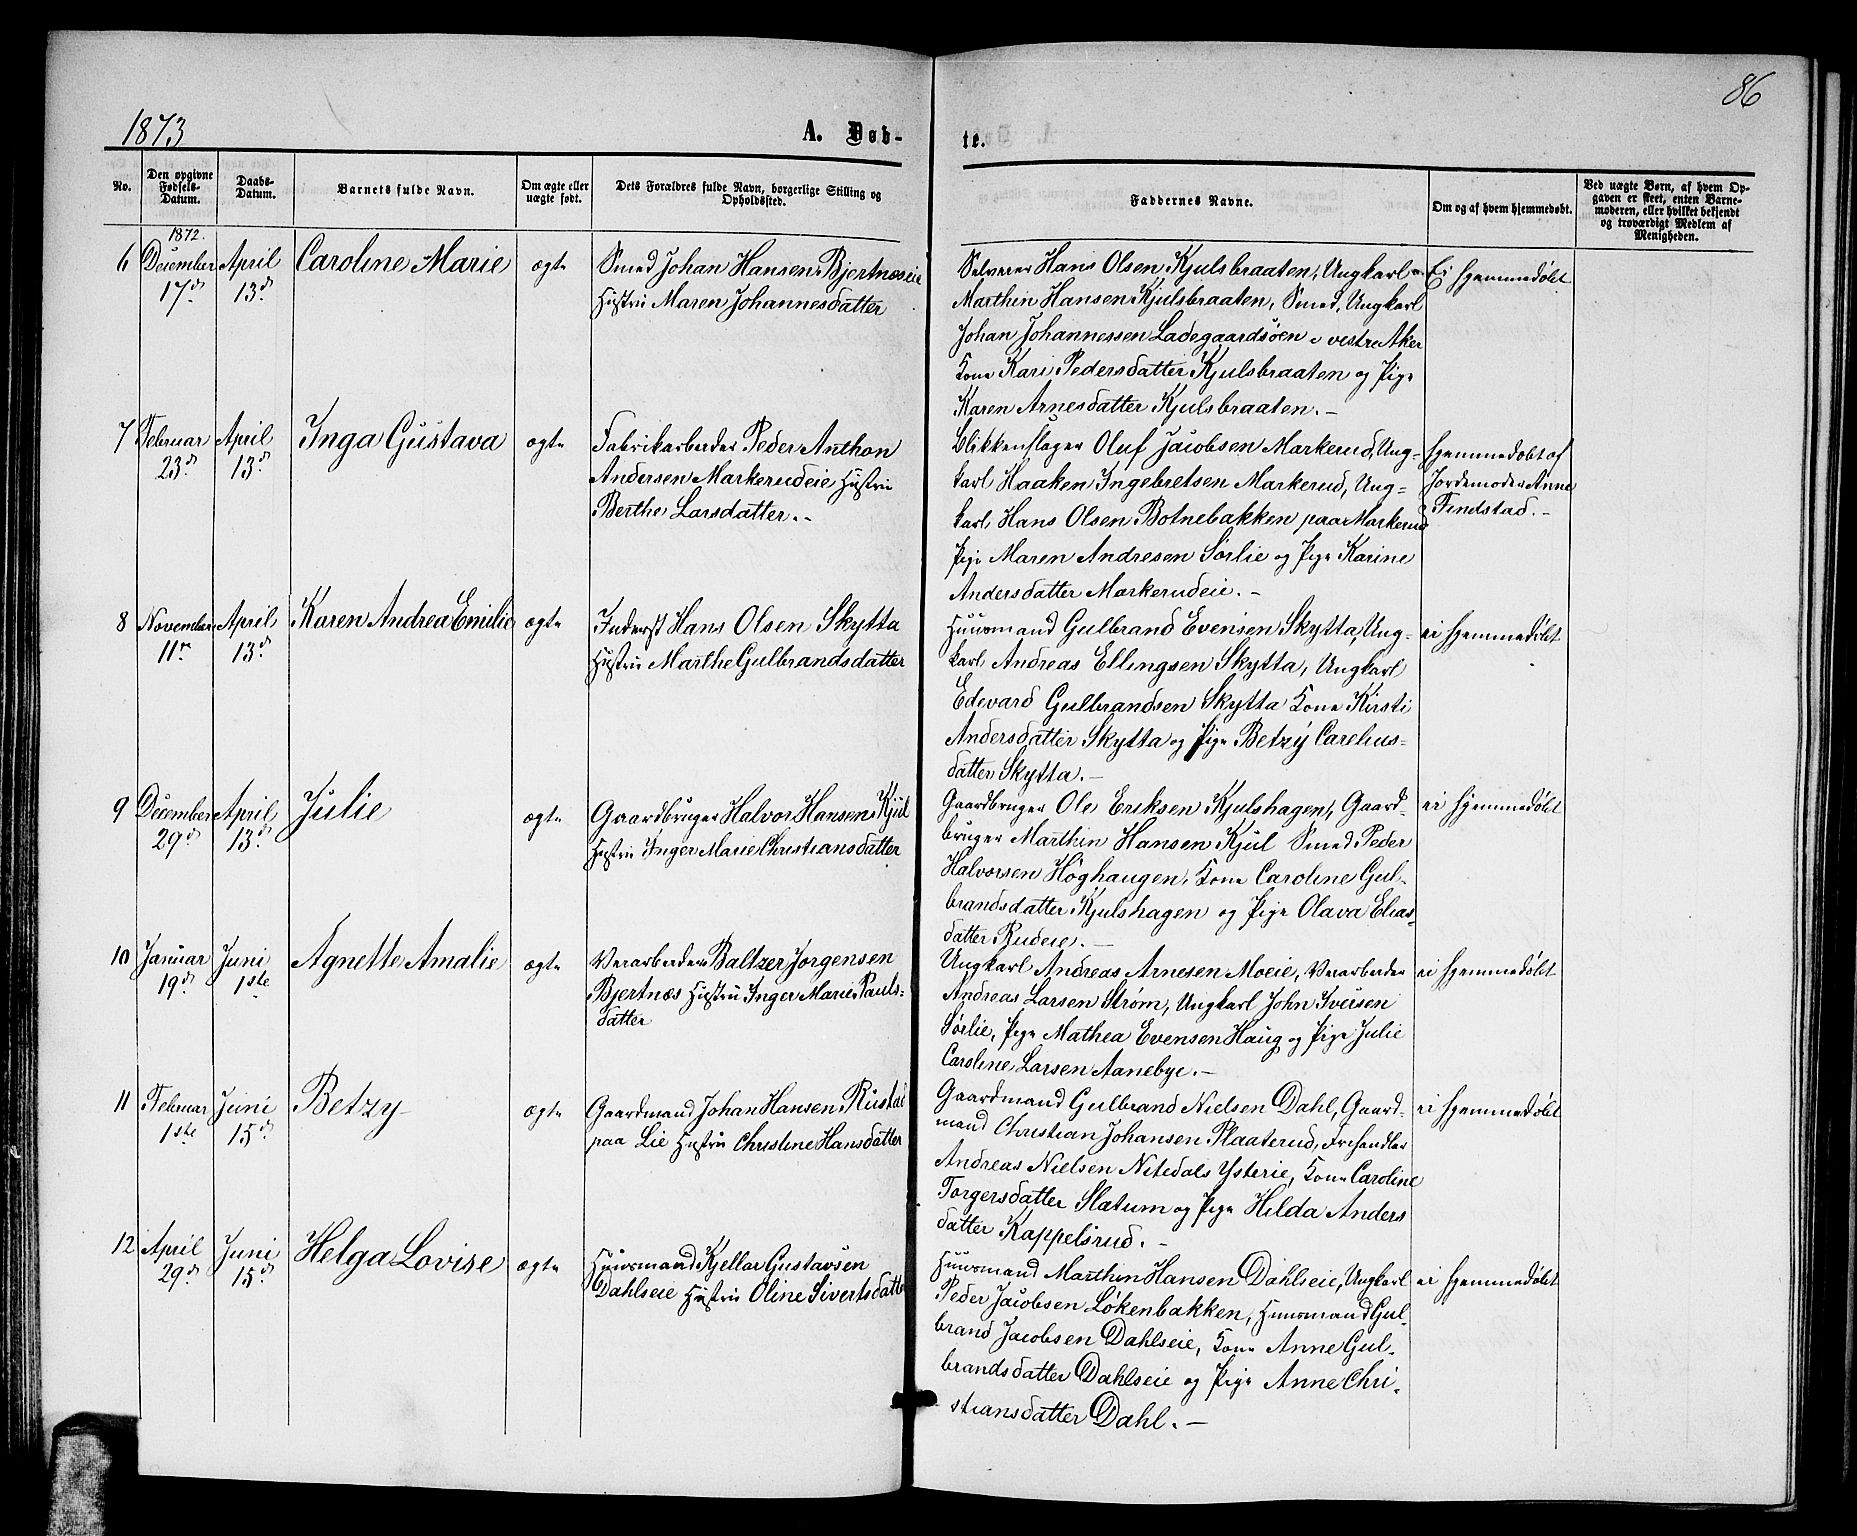 1873
A. Døb-
te.
86
No.
Den opgivne Fødsels-Datum.
Daabs-Datum.
Barnets fulde Navn.
Om ægte eller uægte født.
Dets Forældres fulde Navn, borgerlige Stilling og Opholdssted.
Faddernes Navne.
Om og af hvem hjemmedøbt.
Ved uægte Børn, af hvem Op-
gaven er skeet, enten Barne-
moderen, eller hvilket bekjendt
og troværdigt Medlem af
Menigheden.
1872.
6 December 17d April 13d Caroline Marie ægte
Smed Johan Hansen Bjertnæseie
Hustru Maren Johannesdatter
Selveier Hans Olsen Kjulsbraaten, Ungkarl
Marthin Hansen Kjulsbraaten, Smed, Ungkarl
Johan Johannessen Ladegaardsøen i vestre Aker
Kone Kari Pedersdatter Kjulsbraaten og Pige
Karen Arnesdatter Kjulsbraaten.-
Ei hjemmedøbt
7 Februar 23d April 13d Inga Gustava ægte
Fabrikarbeider Peder Anthon
Andersen Markerudeie Hustru
Berthe Larsdatter.-
Blikkenslager Oluf Jacobsen Markerud, Ung-
karl Haaken Ingebretsen Markerud, Ung-
karl Hans Olsen Botnebakken paa Markerud
Pige Maren Andresen Sørlie og Pige Karine
Andersdatter Markerudeie.-
hjemmedøbt af
Jordemoder Anne
Findstad.-
8 November 11te April 13d Karen Andrea Emilie ægte
Inderst Hans Olsen Skytta
Hustru Marthe Gulbrandsdatter
Huusmand Gulbrand Evensen Skytta, Ung-
karl Andreas Ellingsen Skytta, Ungkarl
Edevard Gulbrandsen Skytta Kone Kirsti
Andersdatter Skytta og Pige Betzy Carelius-
datter Skytta.-
ei hjemmedøbt
9 December 29d April 13d Julie ægte
Gaardbruger Halvor Hansen Kjul
Hustru Inger Marie Christiansdatter
Gaardbruger Ole Eriksen Kjulshagen, Gaard-
bruger Marthin Hansen Kjul Smed Peder
Halvorsen Høghaugen, Kone Caroline Gul-
brandsdatter Kjulshagen og Pige Olava Elias-
datter Rudeie.-
ei hjemmedøbt
10 Januar 19d Juni 1ste Agnette Amalie ægte
Værarbeider Baltzer Jørgensen
Bjertnæs Hustru Inger Marie Pauls-
datter
Ungkarl Andreas Arnesen Moeie, Værarbeider
Andreas Larsen Strøm, Ungkarl John Iversen
Sørlie, Pige Mathea Evensen Haug og Pige Julie
Caroline Larsen Aanebye.-
ei hjemmedøbt
11 Februar 1ste Juni 15d Betzy ægte
Gaardmand Johan Hansen Rustad
paa Lie Hustru Christine Hansdatter
Gaardmand Gulbrand Nielsen Dahl, Gaard-
mand Christian Johansen Plaaterud,
Andreas Nielsen Nitedals Ysterie, Kone Caroline
Torgersdatter Slatum og Pige Hilda Anders
datter Kappelsrud.-
ei hjemmedøbt
12 April 29d Juni 15d Helga Lovise ægte
Huusmand Kjellar Gustavsen
Dahlseie Hustru Oline Sivertsdatter
Huusmand Marthin Hansen Dahlseie, Ungkarl
Peder Jacobsen Løkenbakken, Huusmand Gul-
brand Jacobsen Dahlseie, Kone Anne Gul-
brandsdatter Dahlseie og Pige Anne Chri-
stiansdatter Dahl.-
ei hjemmedøbt